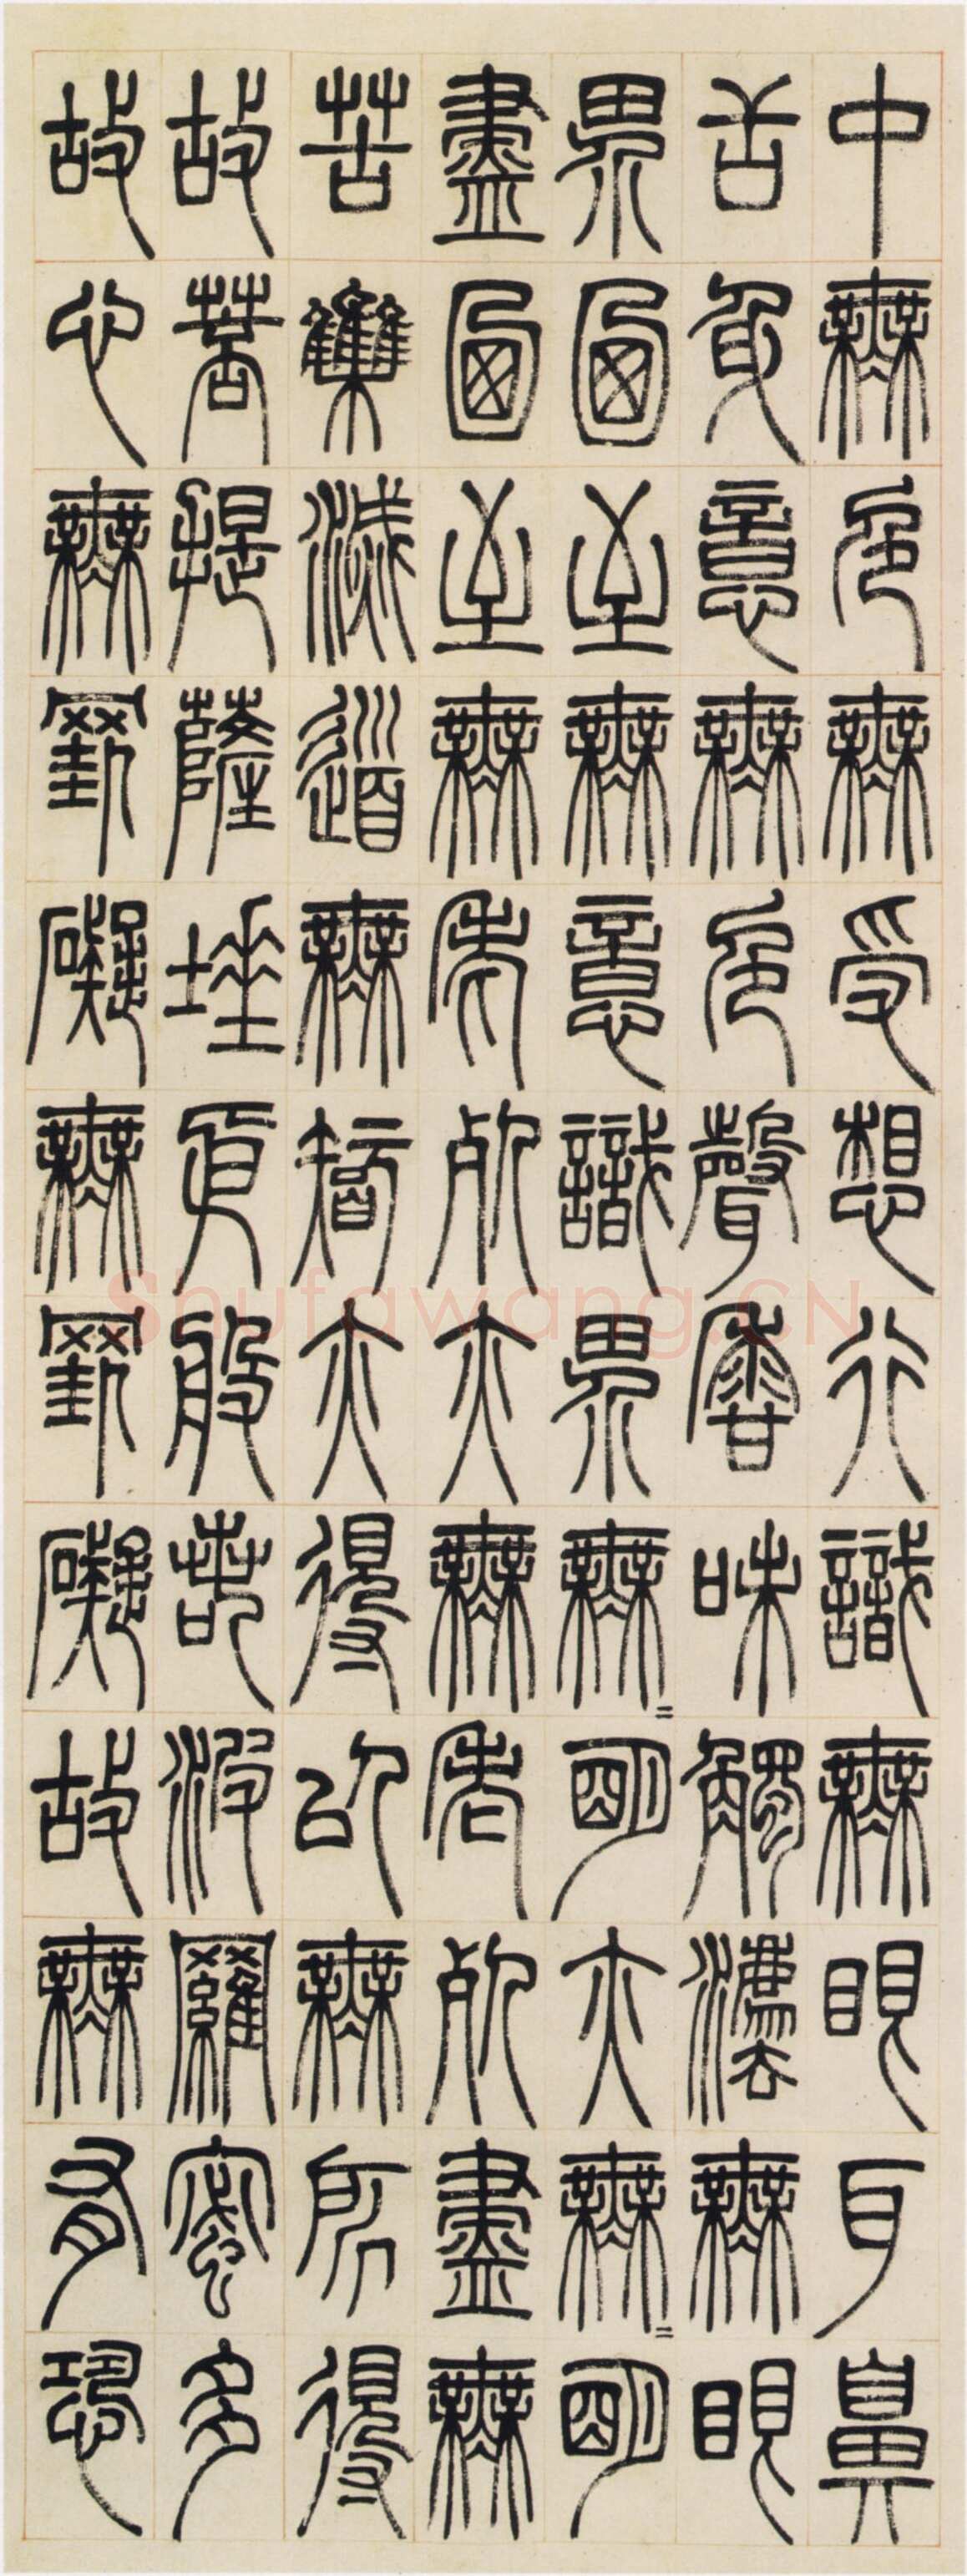 中無色無受想行識無眼耳鼻
舌身意無色聲香味觸法無眼
界迺至無意識界無=明亦無=明
盡迺至無老死亦無老死盡無
苦集滅道無智亦得以無所得
故菩提薩埵㐆般若波羅蜜多
故心無罣礙無罣礙故無有恐
Shufawang.CN